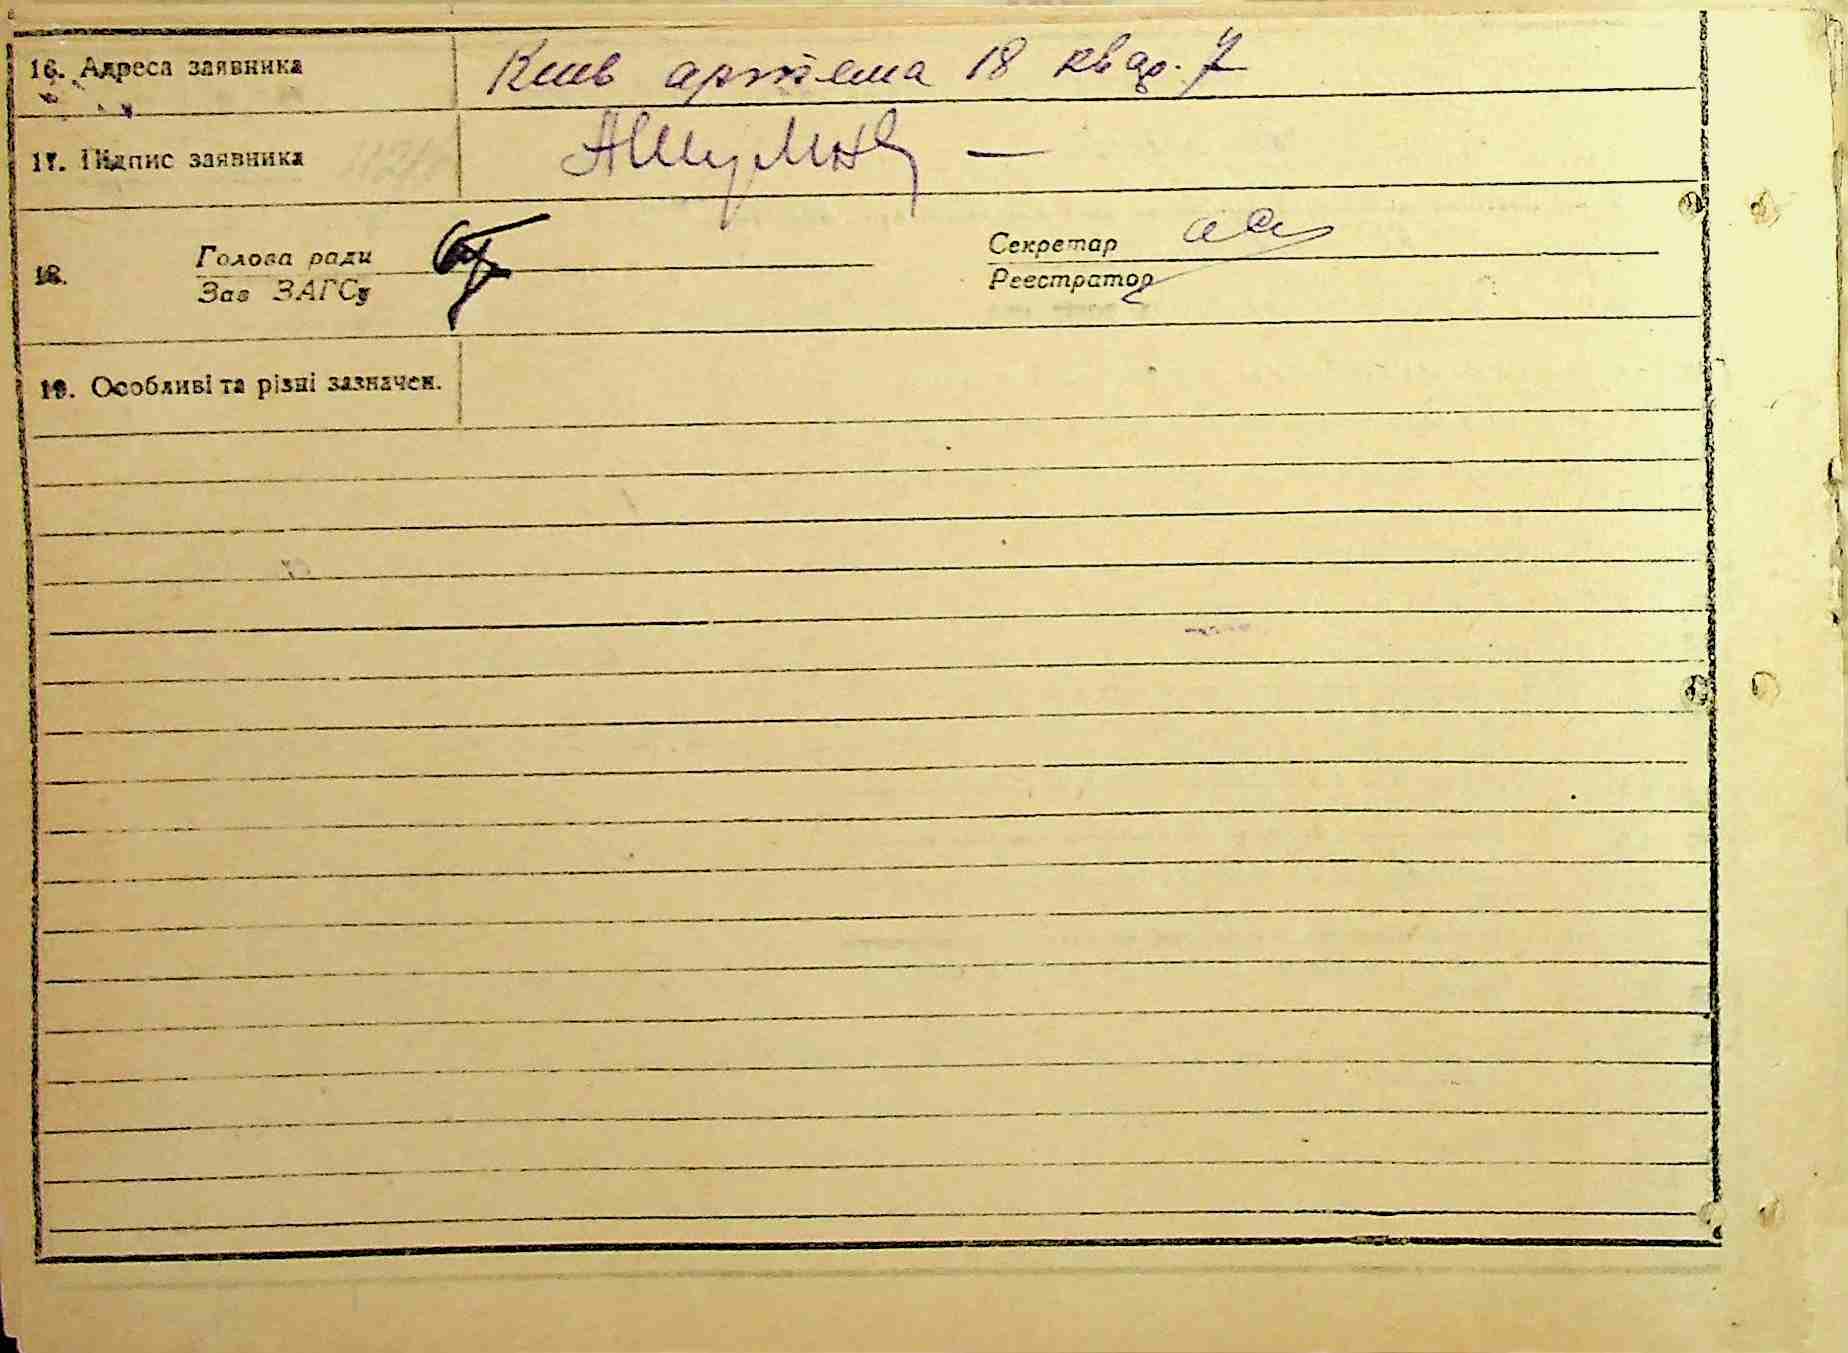 16. Адреса заявника Киев артема 18 квар. 7
17. Підпис заявника
18. Голова ради Секретар
Зав ЗАГСу Реестратор
19. Особливі та різні зазначен.